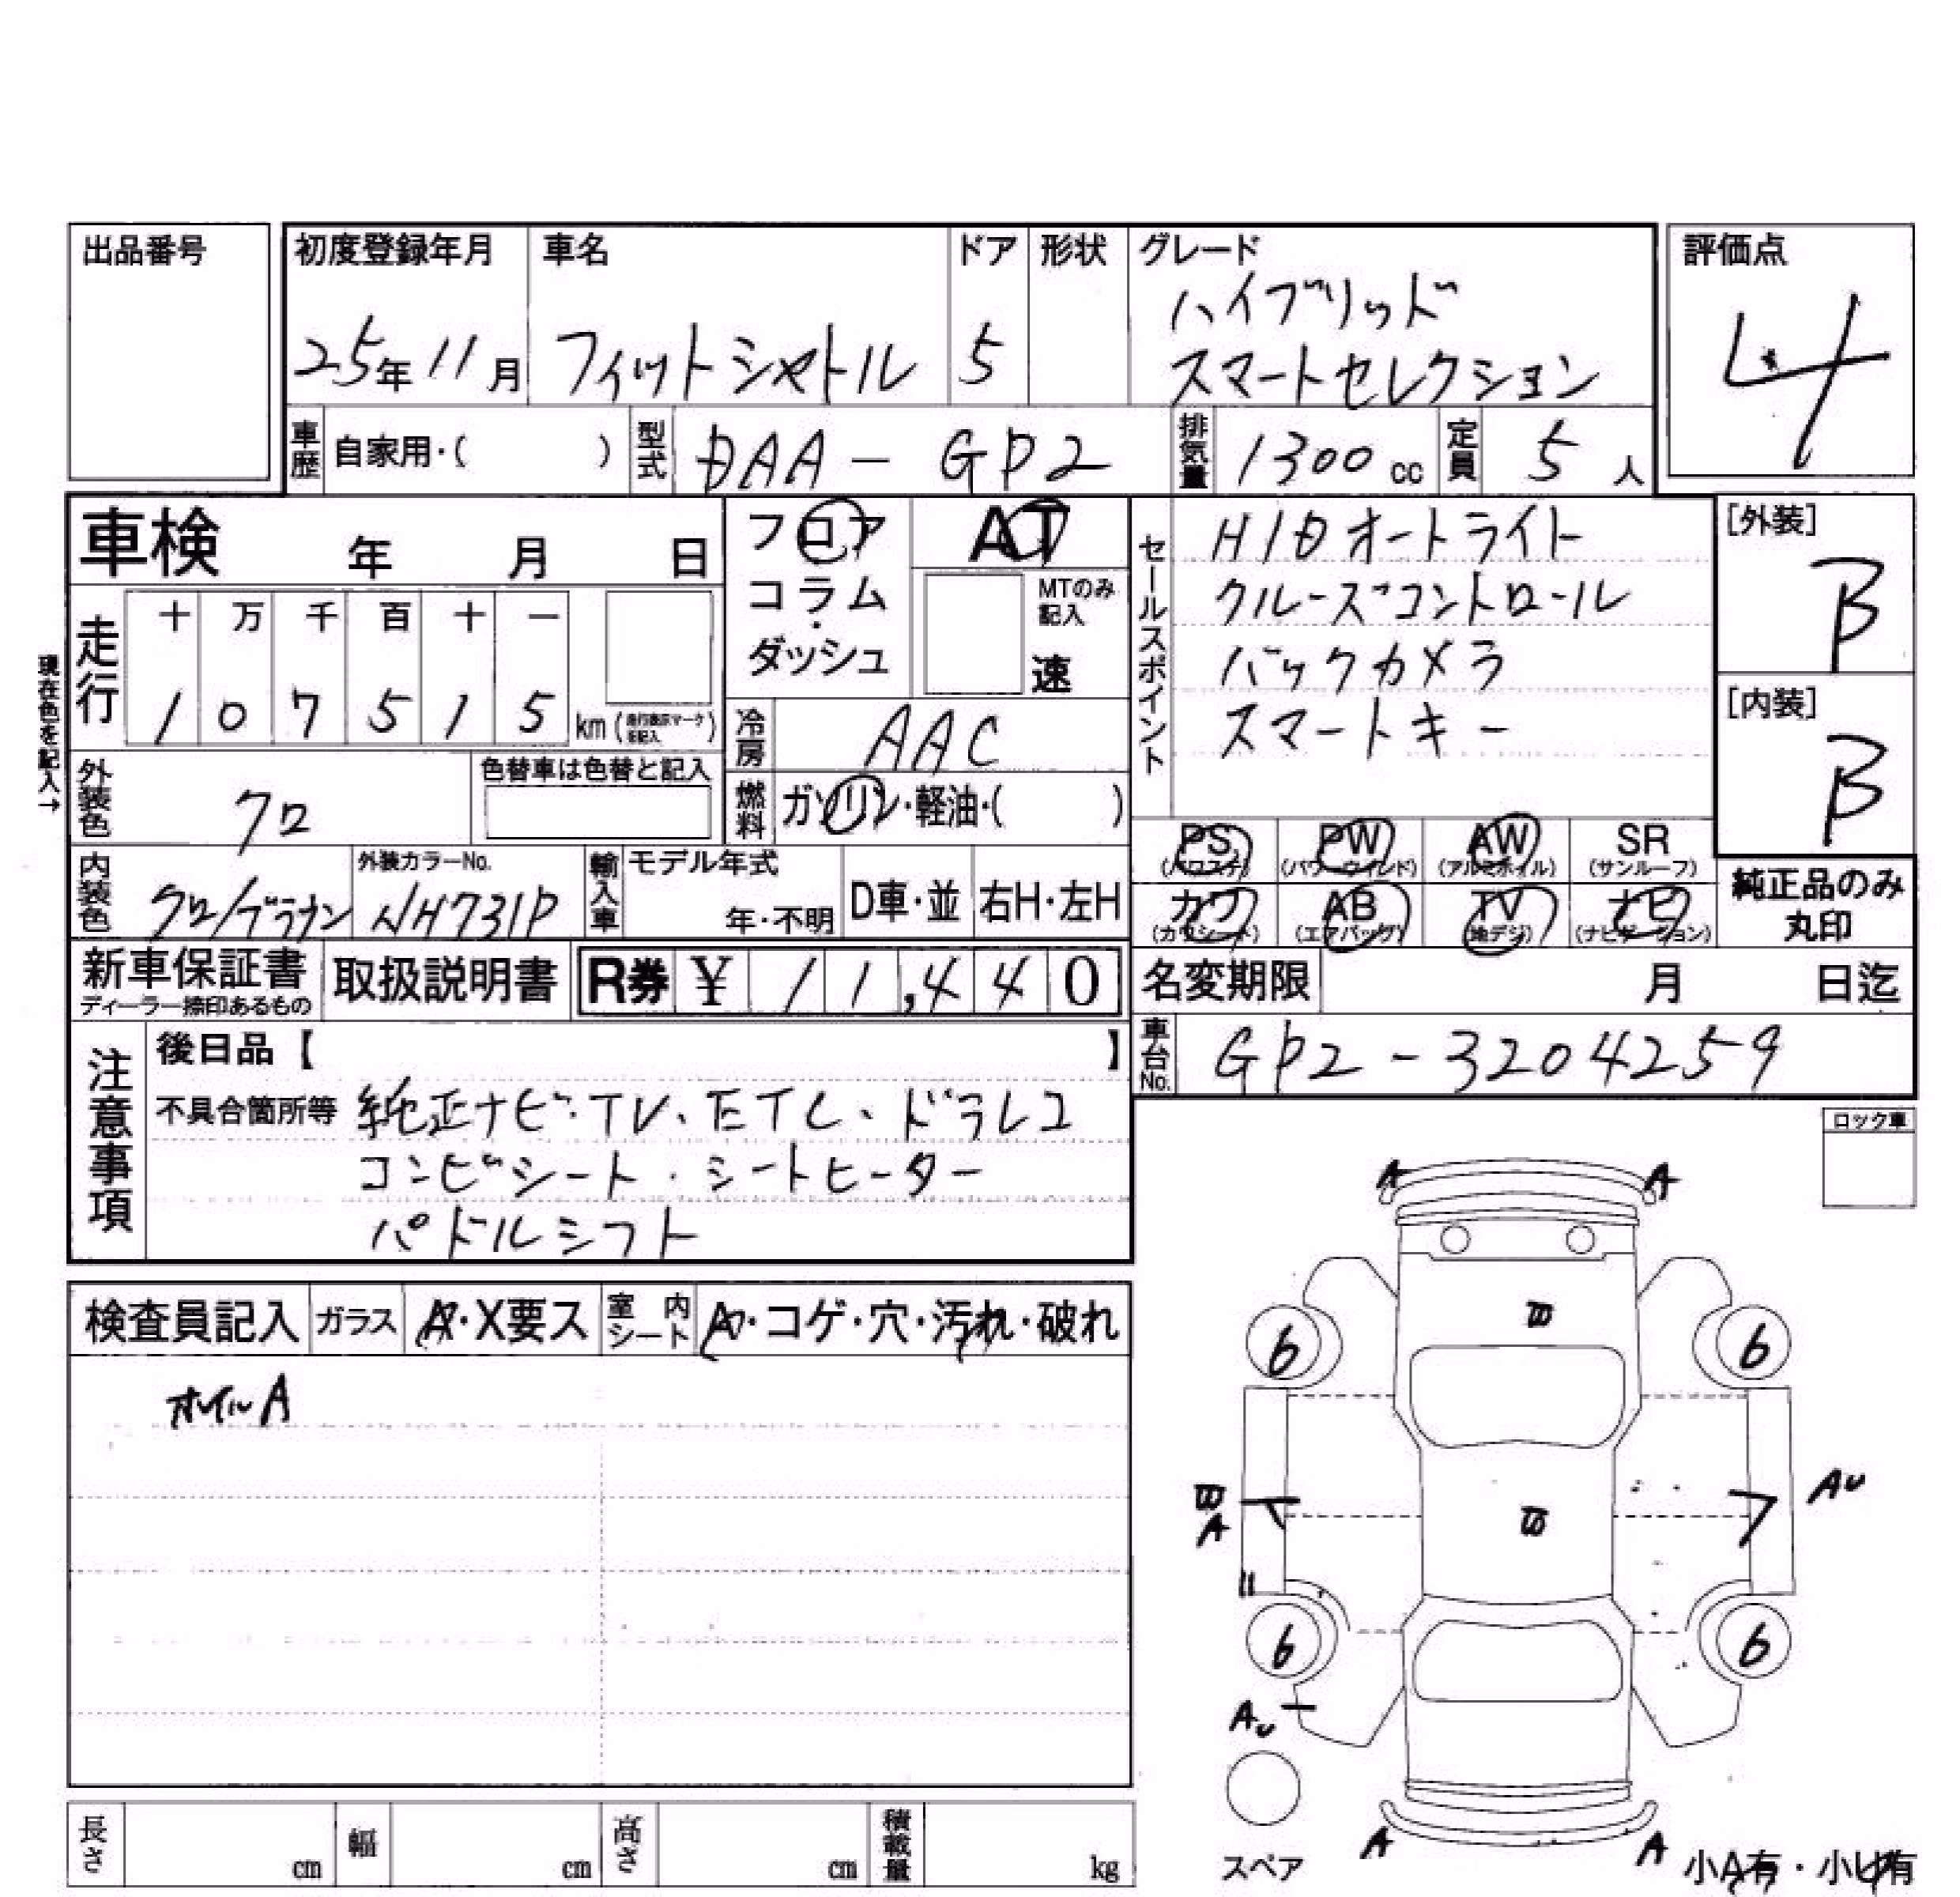 出品番号
初度登録年月 車名 ドア 形状 グレード 評価点
ハイブリッド
25年11月 フィットシャトル 5 スマートセレクション 4
車歴 自家用・( ) 型式 DAA-GP2 排気量 1300cc 定員 5人
車検 年 月 日
フロア
コラム・
ダッシュ
AT
MTのみ記入
速
セールスポイント
HIDオートライト
クルーズコントロール
バックカメラ
スマートキー
[外装]
B
[内装]
B
現在色を記入→
走行
十 万 千 百 十 一
1 0 7 5 1 5 km
冷房 AAC
外装色 クロ
色替車は色替と記入
燃料 ガソリン・軽油・( )
PS PW AW SR
(パワステ) (パワーウインド) (アルミホイル) (サンルーフ)
カワ AB TV ナビ
(カワシート) (エアバッグ) (地デジ) (ナビゲーション)
純正品のみ
丸印
内装色 クロ/ブラウン
外装カラーNo.
NH731P
輸入車 モデル年式
年・不明 D車・並 右H・左H
新車保証書
ディーラー捺印あるもの
取扱説明書 R券 ¥ 11,440
名変期限 月 日迄
車台No. GP2-3204259
注意事項
後日品【 】
不具合箇所等 純正ナビ・TV、ETC、ドラレコ
コンビシート・シートヒーター
パドルシフト
ロック車
A A
検査員記入 ガラス A・X要ス 室内シート A・コゲ・穴・汚れ・破れ
6 6
A
AU
A
6 6
AU
スペア
A A
小A有・小U有
長さ cm 幅 cm 高さ cm 積載量 kg